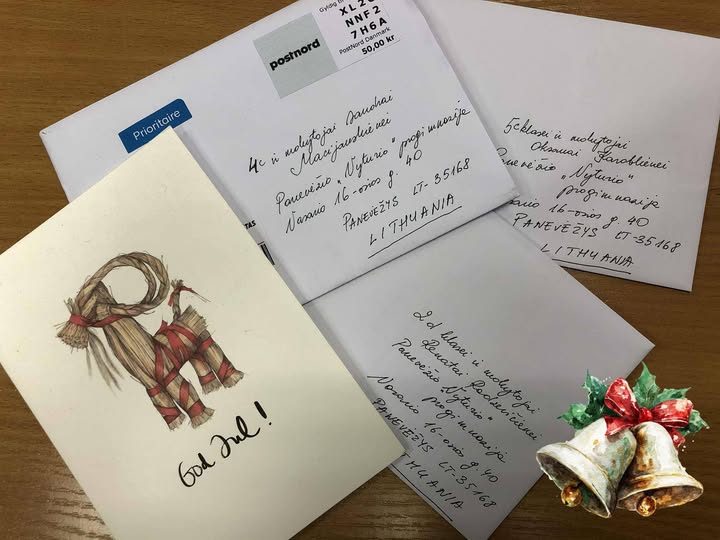 Gyldig
XL2
NNF2
7H6A
PostNord Danmark
50,00 kr
postnord
Prioritaire
4c ir mokytojai Sandrai
Macijauskienei
Panevėžio „Vyturio" progimnazija
Vasario 16-osios g. 40
PANEVĖŽYS LT-35168
LITHUANIA
5c klasei ir mokytojai
Oksanai Karoblienei
Panevėžio „Vyturio"
progimnazija
Vasario 16-osios g. 40
PANEVĖŽYS LT-35168
LITHUANIA
2d klasei ir mokytojai
Renatai
Panevėžio „Vyturio"
progimnazija
Vasario 16-osios g. 40
PANEVĖŽYS LT-35168
LITHUANIA
TAS
God Jul!